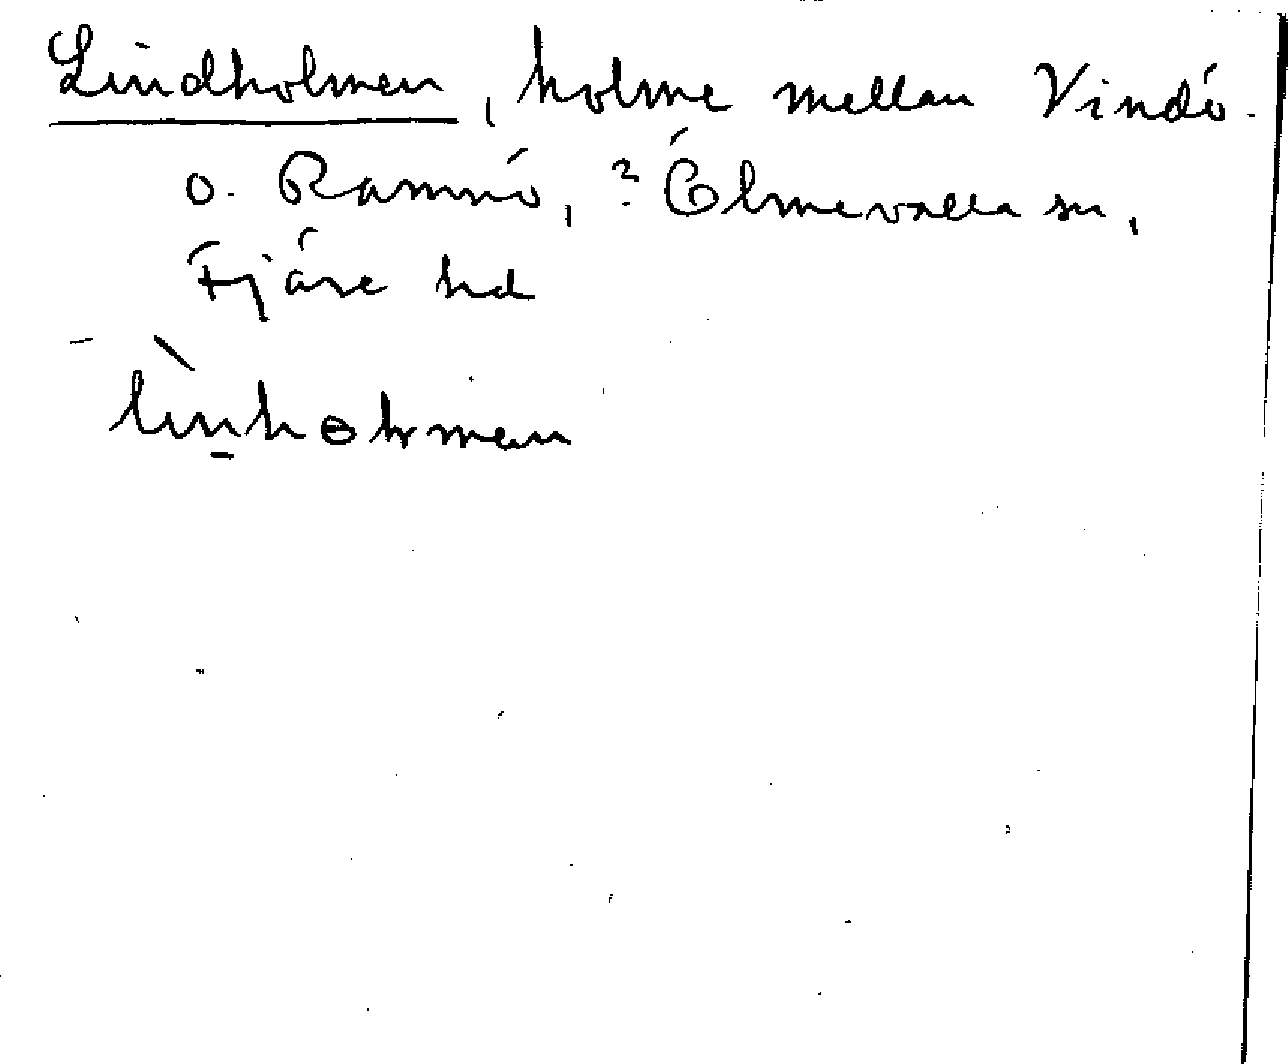 Lindholmen, holme mellan Vindö
o. Ramnö, ? Ölmevalla sn,
Fjäre hd